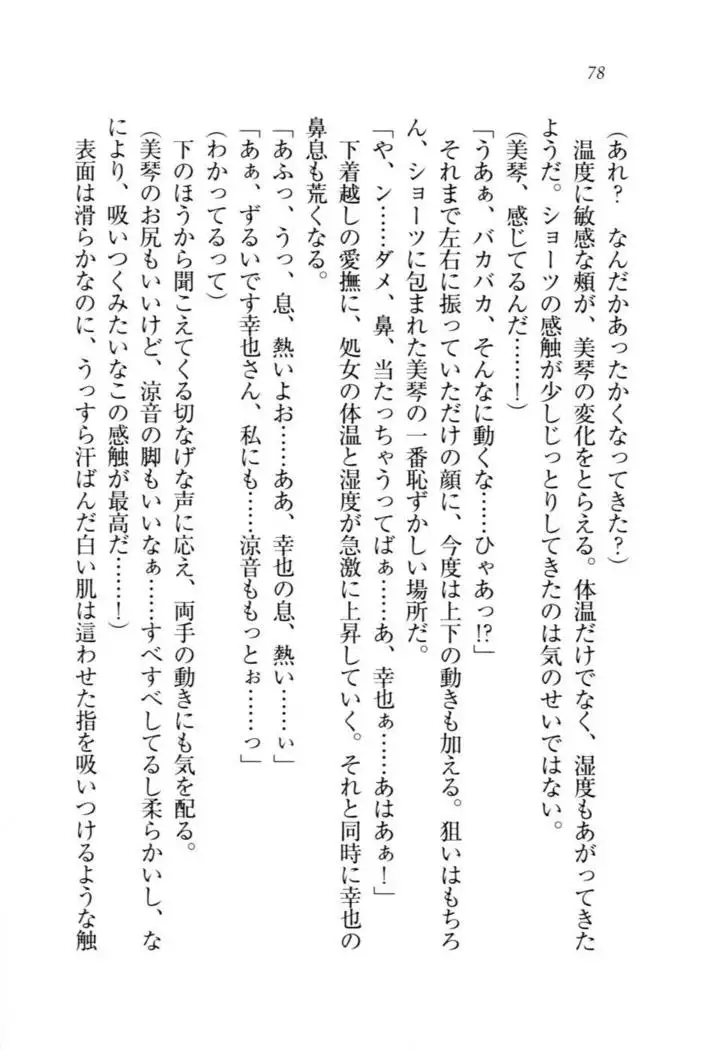 78
(あれ? なんだかあったかくなってきた?)
温度に敏感な頰が、美琴の変化をとらえる。体温だけでなく、湿度もあがってきた
ようだ。ショーツの感触が少しじっとりしてきたのは気のせいではない。
(美琴、感じてるんだ……!)
「うあぁ、バカバカ、そんなに動くな……ひゃあっ!?」
それまで左右に振っていただけの顔に、今度は上下の動きも加える。狙いはもちろ
ん、ショーツに包まれた美琴の一番恥ずかしい場所だ。
「や、ン……ダメ、鼻、当たっちゃうってばぁ……あ、幸也ぁ……あはあぁ!」
下着越しの愛撫に、処女の体温と湿度が急激に上昇していく。それと同時に幸也の
鼻息も荒くなる。
「あふっ、うっ、息、熱いよお……ああ、幸也の息、熱い……ぃ」
「あぁ、ずるいです幸也さん、私にも……涼音ももっとぉ……っ」
(わかってるって)
下のほうから聞こえてくる切なげな声に応え、両手の動きにも気を配る。
(美琴のお尻もいいけど、涼音の脚もいいなぁ……すべすべしてるし柔らかいし、な
により、吸いつくみたいなこの感触が最高だ……!)
表面は滑らかなのに、うっすら汗ばんだ白い肌は這わせた指を吸いつけるような触